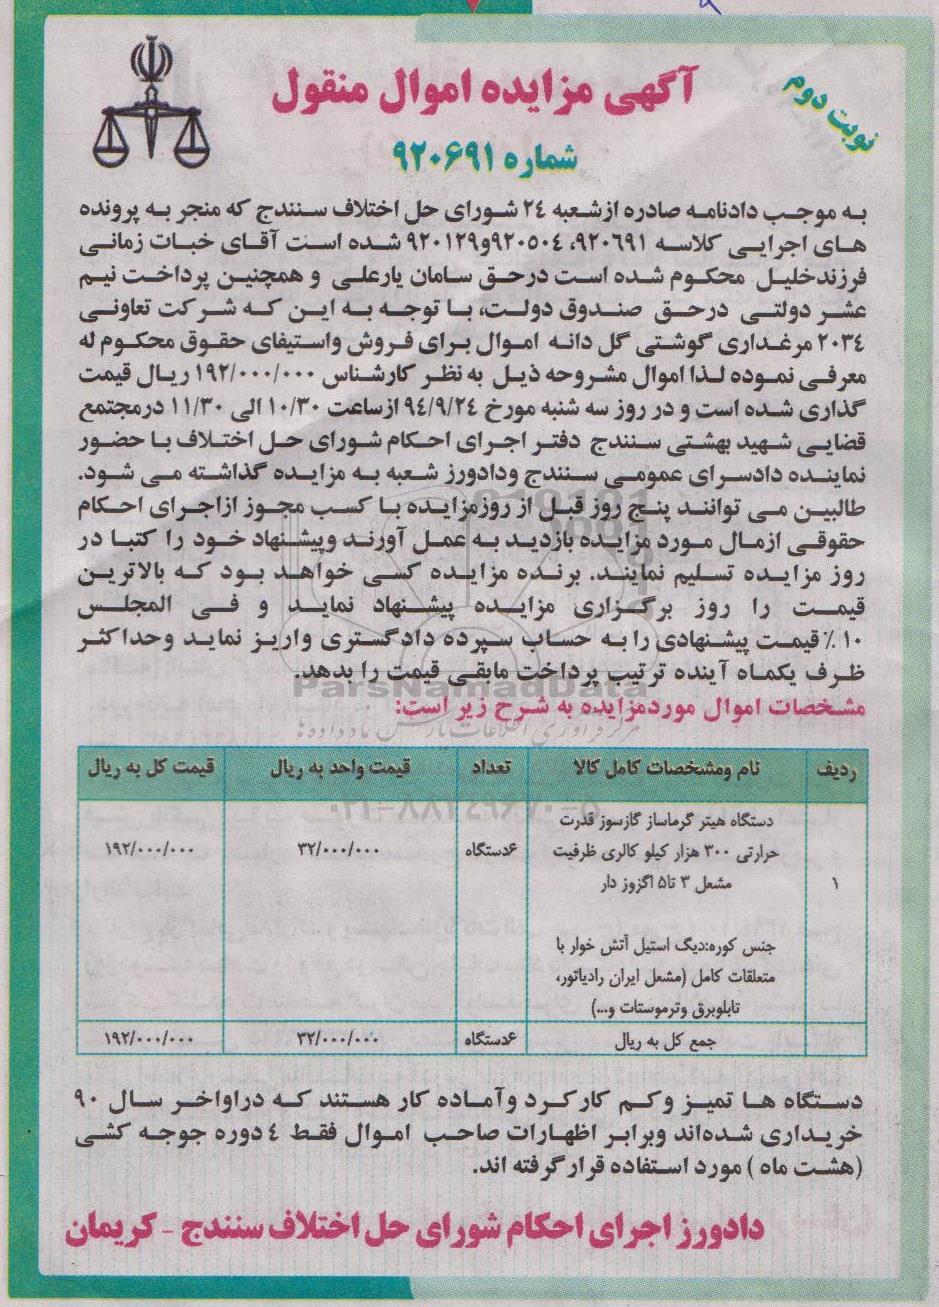 آگهی مزایده اموال منقول
نوبت دوم
شماره ۹۲۰۶۹۱
به موجب دادنامه صادره از شعبه ۲۴ شورای حل اختلاف سنندج که منجر به پرونده
های اجرایی کلاسه ۹۲۰۶۹۱، ۹۲۰۵۰۴و۹۲۰۱۲۹ شده است آقای خبات زمانی
فرزندخلیل محکوم شده است درحق سامان یارعلی و همچنین پرداخت نیم
عشر دولتی درحق صندوق دولت، با توجه به این که شرکت تعاونی
۲۰۳۴ مرغداری گوشتی گل دانه اموال برای فروش واستیفای حقوق محکوم له
معرفی نموده لذا اموال مشروحه ذیل به نظر کارشناس ۱۹۲/۰۰۰/۰۰۰ ریال قیمت
گذاری شده است و در روز سه شنبه مورخ ۹۴/۹/۲۴ ازساعت ۱۰/۳۰ الی ۱۱/۳۰ درمجتمع
قضایی شهید بهشتی سنندج دفتر اجرای احکام شورای حل اختلاف با حضور
نماینده دادسرای عمومی سنندج ودادورز شعبه به مزایده گذاشته می شود.
طالبین می توانند پنج روز قبل از روزمزایده با کسب مجوز ازاجرای احکام
حقوقی ازمال مورد مزایده بازدید به عمل آورند وپیشنهاد خود را کتبا در
روز مزایده تسلیم نمایند. برنده مزایده کسی خواهد بود که بالاترین
قیمت را روز برگزاری مزایده پیشنهاد نماید و فی المجلس
۱۰٪ قیمت پیشنهادی را به حساب سپرده دادگستری واریز نماید وحداکثر
ظرف یکماه آینده ترتیب پرداخت مابقی قیمت را بدهد.
ParsNamadData
مشخصات اموال موردمزایده به شرح زیر است:
مرکز فرآوری اطلاعات پارس نماد داده ها
ردیف نام ومشخصات کامل کالا تعداد قیمت واحد به ریال قیمت کل به ریال
دستگاه هیتر گرماساز گازسوز قدرت
حرارتی ۳۰۰ هزار کیلو کالری ظرفیت ۶دستگاه ۳۲/۰۰۰/۰۰۰ ۱۹۲/۰۰۰/۰۰۰
۱ مشعل ۳ تا۵ اگزوز دار
جنس کوره:دیگ استیل آتش خوار با
متعلقات کامل (مشعل ایران رادیاتور،
تابلوبرق وترموستات و...)
جمع کل به ریال ۶دستگاه ۳۲/۰۰۰/۰۰۰ ۱۹۲/۰۰۰/۰۰۰
دستگاه ها تمیز وکم کارکرد وآماده کار هستند که دراواخر سال ۹۰
خریداری شده‌اند وبرابر اظهارات صاحب اموال فقط ٤ دوره جوجه کشی
(هشت ماه ) مورد استفاده قرار گرفته اند.
دادورز اجرای احکام شورای حل اختلاف سنندج - کریمان